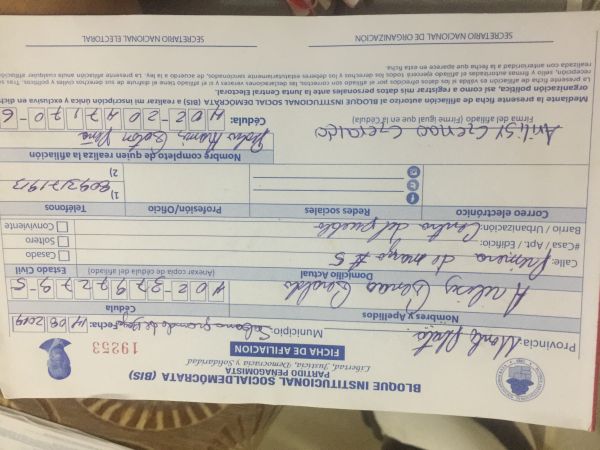 BLOQUE INSTITUCIONAL SOCIALDEMÓCRATA (BIS)
PARTIDO PEÑAGOMISTA
Libertad, Justicia, Democracia y Solidaridad
FICHA DE AFILIACION
19253
Provincia Monte Plata Municipio Sabana grande de Boya Fecha: 14 08 2019
Nombres y Apellidos Cédula
Geraldo 402-3797279-5
Domicilio Actual (Anexar copia de cédula del afiliado) Estado Civil
Calle: Primera de mayo # 5
#Casa / Apt. / Edificio:
Barrio / Urbanización: Centro del pueblo
Casado
Soltero
Conviviente
Correo electrónico Redes sociales Profesión/Oficio Teléfonos
1) 8093171913
2)
Nombre completo de quien realiza la afiliación
Pedro
Cédula: 402-2047170-6
Firma del afiliado (Firme igual que en la Cédula)
Mediante la presente ficha de afiliación autorizo al BLOQUE INSTITUCIONAL SOCIALDEMÓCRATA (BIS) a realizar mi inscripción única y exclusiva en dicha
organización política, así como a registrar mis datos personales ante la Junta Central Electoral.
La presente ficha de afiliación es válida si los datos ofrecidos por el afiliado son correctos, las declaraciones veraces y si el afiliado tiene el pleno disfrute de sus derechos civiles y políticos. Tras su
recepción, sello y firmas autorizadas el afiliado ejercerá todos los derechos y los deberes estatutariamente sancionados, de acuerdo a la ley. La presente afiliación anula cualquier
realizada con anterioridad a la fecha que aparece en esta ficha.
SECRETARIO NACIONAL DE ORGANIZACIÓN SECRETARIO NACIONAL ELECTORAL